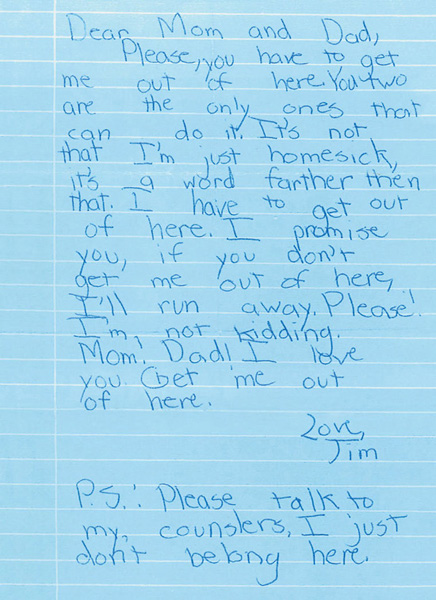 Dear Mom and Dad,
Please, you have to get
me out of here. You two
are the only ones that
can do it. It's not
that I'm just homesick,
it's a word farther then
that. I have to get out
of here. I promise
you, if you don't
get me out of here,
I'll run away. Please!
I'm, not kidding.
Mom! Dad! I love
you. Get me out
of here.
Love,
Jim
P.S.: Please talk to
my, counslers, I just
don't belong here.